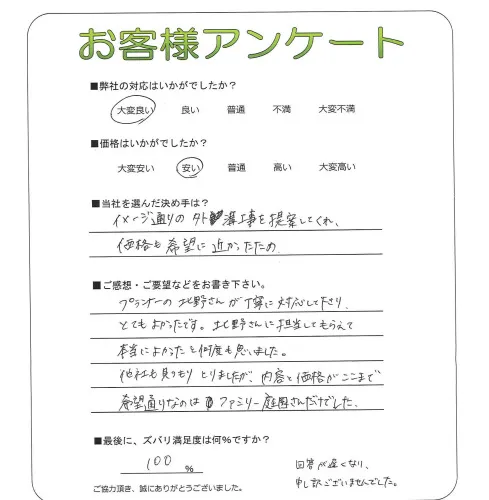 お客様アンケート
■弊社の対応はいかがでしたか？
大変良い 良い 普通 不満 大変不満
■価格はいかがでしたか？
大変安い 安い 普通 高い 大変高い
■当社を選んだ決め手は？
イメージ通りの外溝工事を提案してくれ、
価格も希望に近かったため
■ご感想・ご要望などをお書き下さい。
プランナーの北野さんが丁寧に対応して下さり、
とてもよかったです。北野さんに担当してもらえて
本当によかったと何度も思いました。
他社も見つもりとりましたが、内容と価格がここまで
希望通りなのはファミリー庭園さんだけでした。
■最後に、ズバリ満足度は何％ですか？
100 %
回答が遅くなり、
申し訳ございませんでした。
ご協力頂き、誠にありがとうございました。